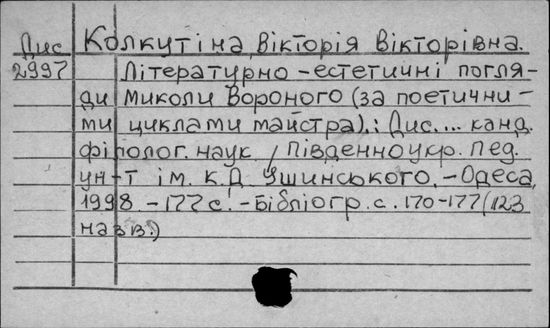 Дис Колкутіна, Вікторія Вікторівна.
2997 Літературно-естетичні погля-
ди Миколи Вороного (за поетични-
ми циклами майстра).: Дис... канд.
філолог. наук / Південноукр. пед.
ун-т ім. К.Д Ушинського. - Одеса,
1998. - 177 с. - Бібліогр. с. 170-177 (123
назв.)